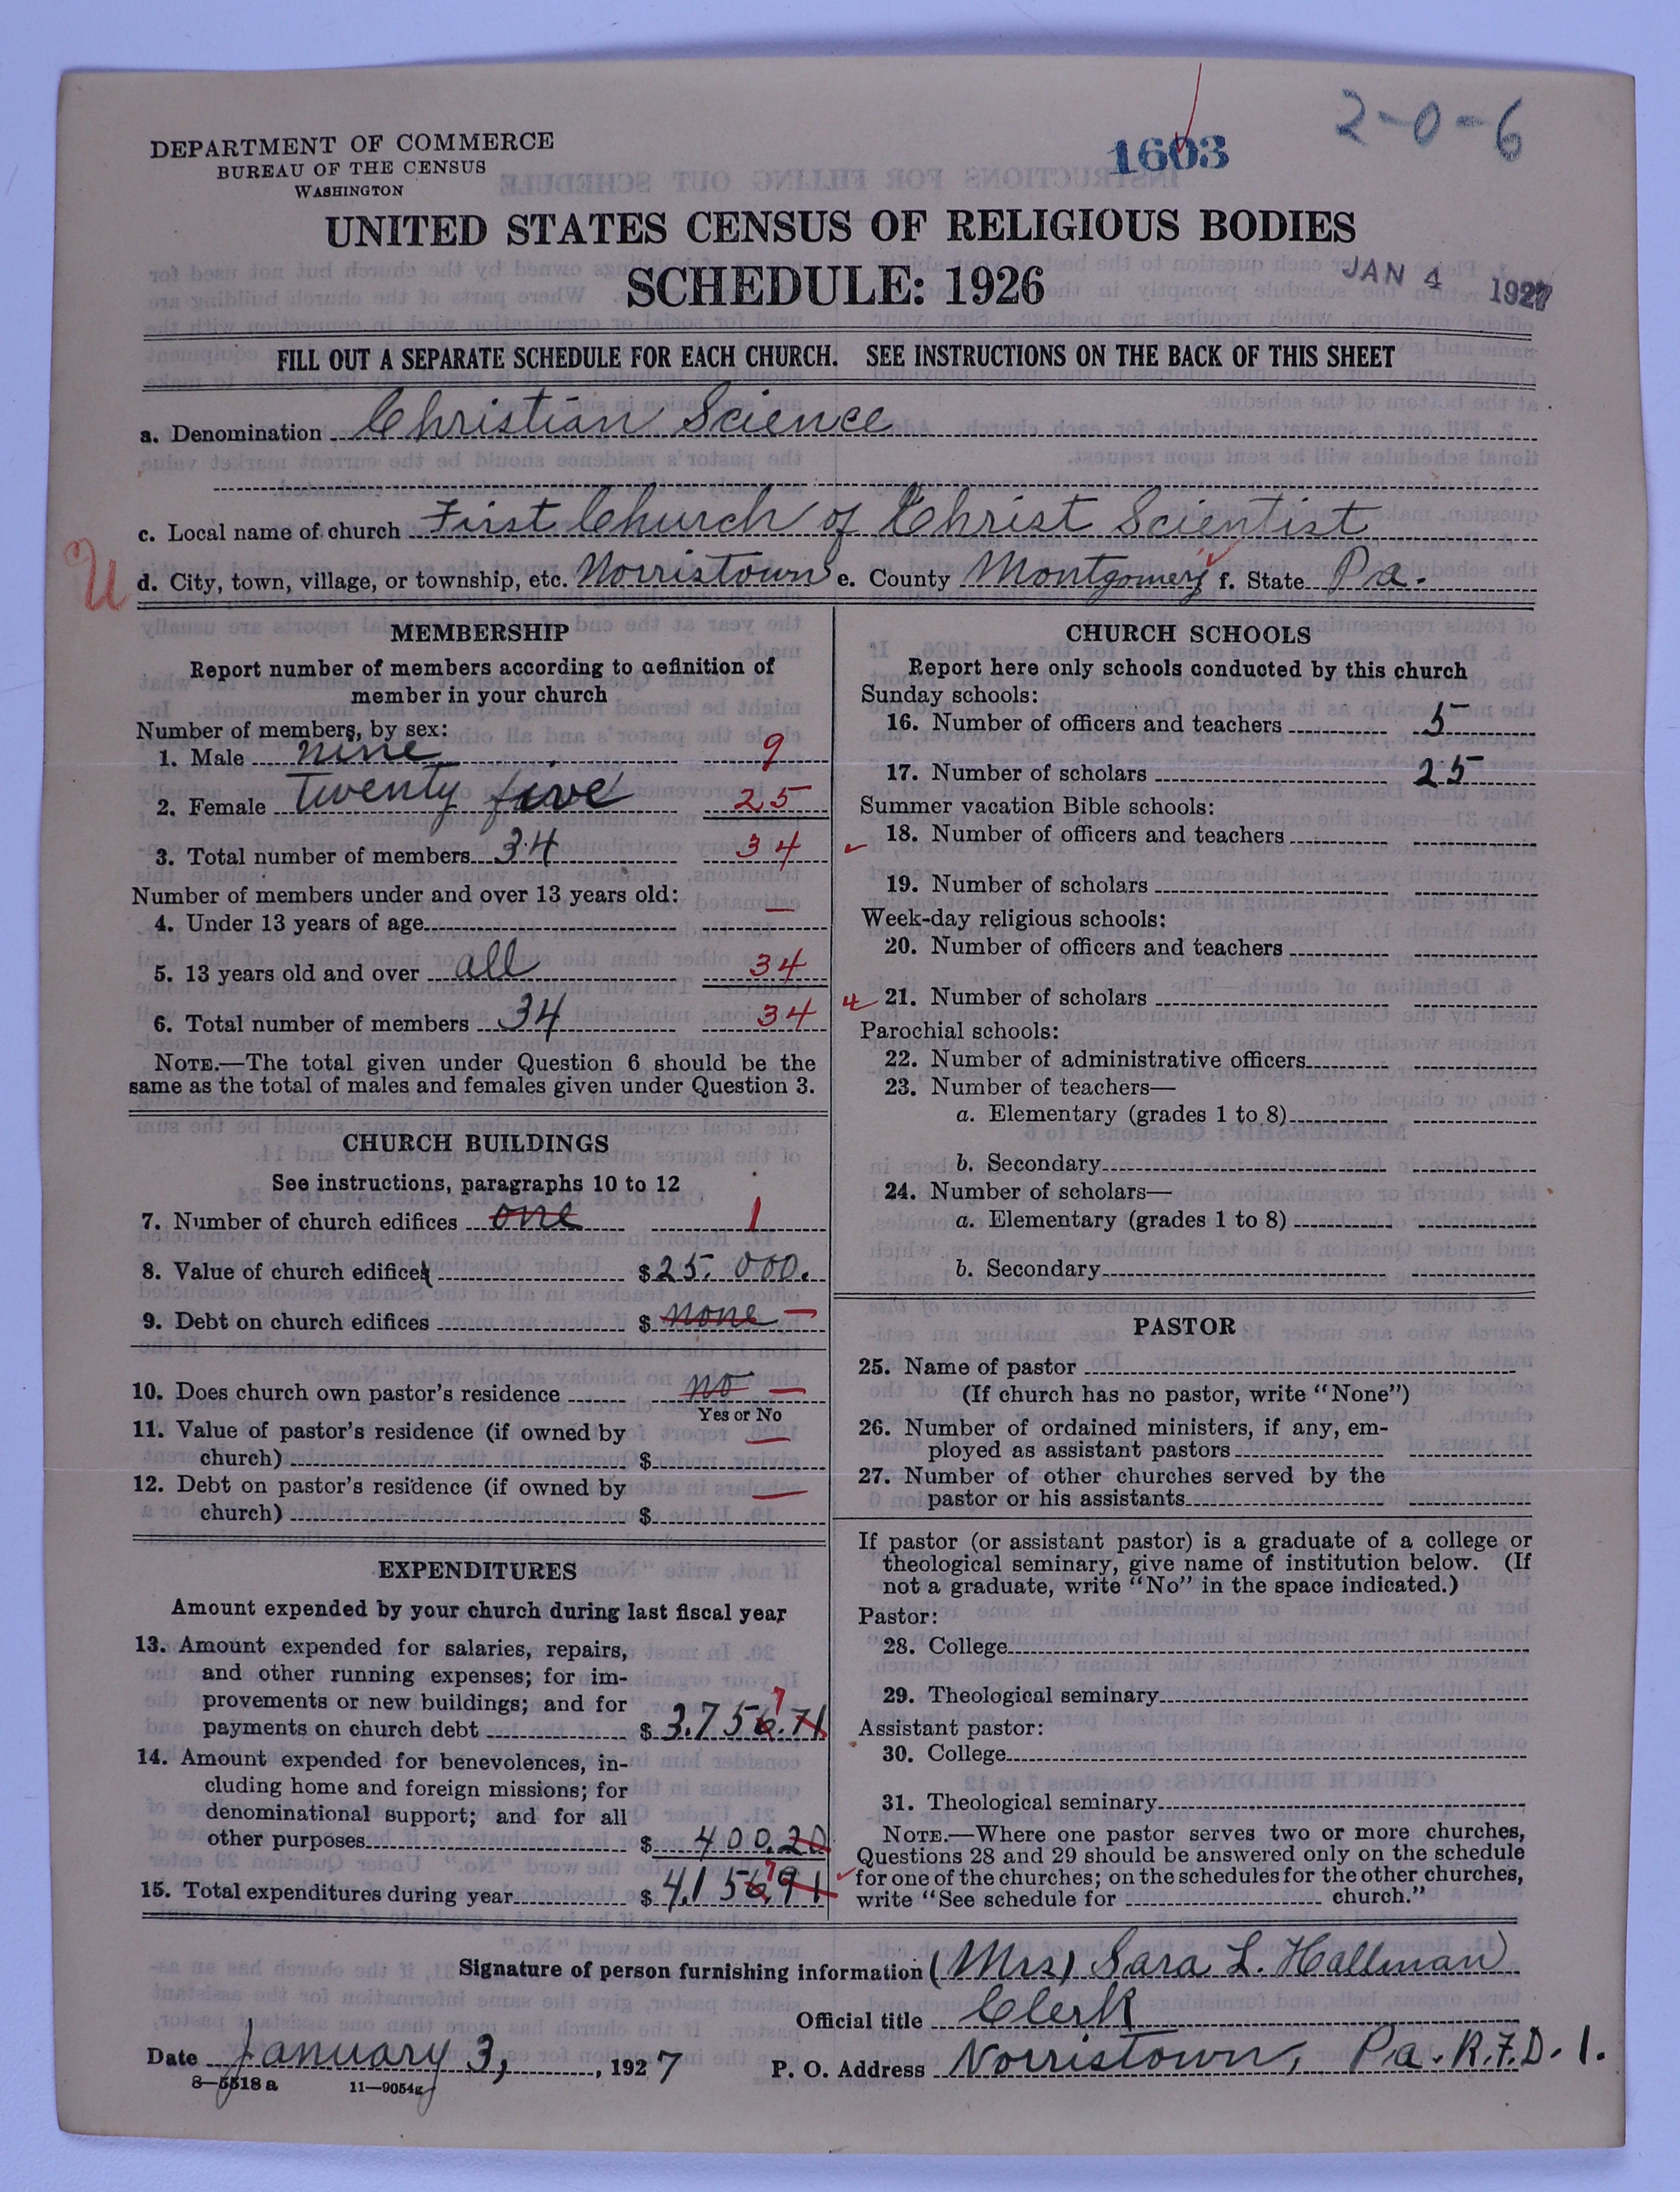 2-0-6
1603
DEPARTMENT OF COMMERCE
BUREAU OF THE CENSUS
WASHINGTON
UNITED STATES CENSUS OF RELIGIOUS BODIES
SCHEDULE: 1926
JAN 4 1927
FILL OUT A SEPARATE SCHEDULE FOR EACH CHURCH. SEE INSTRUCTIONS ON THE BACK OF THIS SHEET
a. Denomination Christian Science
c. Local name of church First Church of Christ Scientist
U
d. City, town, village, or township, etc. Norristown e. County Montgomery f. State Pa.
MEMBERSHIP
Report number of members according to definition of
member in your church
Number of members, by sex:
1. Male nine 9
2. Female Twenty five 25
3. Total number of members 34 34
Number of members under and over 13 years old:
4. Under 13 years of age —
5. 13 years old and over all 34
6. Total number of members 34 34
NOTE.—The total given under Question 6 should be the
same as the total of males and females given under Question 3.
CHURCH BUILDINGS
See instructions, paragraphs 10 to 12
7. Number of church edifices one 1
8. Value of church edifices $ 25.000.
9. Debt on church edifices $ none —
10. Does church own pastor's residence no —
Yes or No
11. Value of pastor's residence (if owned by
church) $ —
12. Debt on pastor's residence (if owned by
church) $ —
EXPENDITURES
Amount expended by your church during last fiscal year
13. Amount expended for salaries, repairs,
and other running expenses; for im-
provements or new buildings; and for
7
payments on church debt $ 3.756.71
14. Amount expended for benevolences, in-
cluding home and foreign missions; for
denominational support; and for all
other purposes $ 400.20
7
15. Total expenditures during year $ 4,156.91
CHURCH SCHOOLS
Report here only schools conducted by this church
Sunday schools:
16. Number of officers and teachers 5
17. Number of scholars 25
Summer vacation Bible schools:
18. Number of officers and teachers
19. Number of scholars
Week-day religious schools:
20. Number of officers and teachers
21. Number of scholars
Parochial schools:
22. Number of administrative officers
23. Number of teachers—
a. Elementary (grades 1 to 8)
b. Secondary
24. Number of scholars—
a. Elementary (grades 1 to 8)
b. Secondary
PASTOR
25. Name of pastor
(If church has no pastor, write "None")
26. Number of ordained ministers, if any, em-
ployed as assistant pastors
27. Number of other churches served by the
pastor or his assistants
If pastor (or assistant pastor) is a graduate of a college or
theological seminary, give name of institution below. (If
not a graduate, write "No" in the space indicated.)
Pastor:
28. College
29. Theological seminary
Assistant pastor:
30. College
31. Theological seminary
NOTE.—Where one pastor serves two or more churches,
Questions 28 and 29 should be answered only on the schedule
for one of the churches; on the schedules for the other churches,
write "See schedule for church."
Signature of person furnishing information (Mrs) Sara L. Hallman
Official title Clerk
Date January 3, , 1927 P. O. Address Norristown, Pa. R.F.D. 1.
8—5518 a 11—9054g